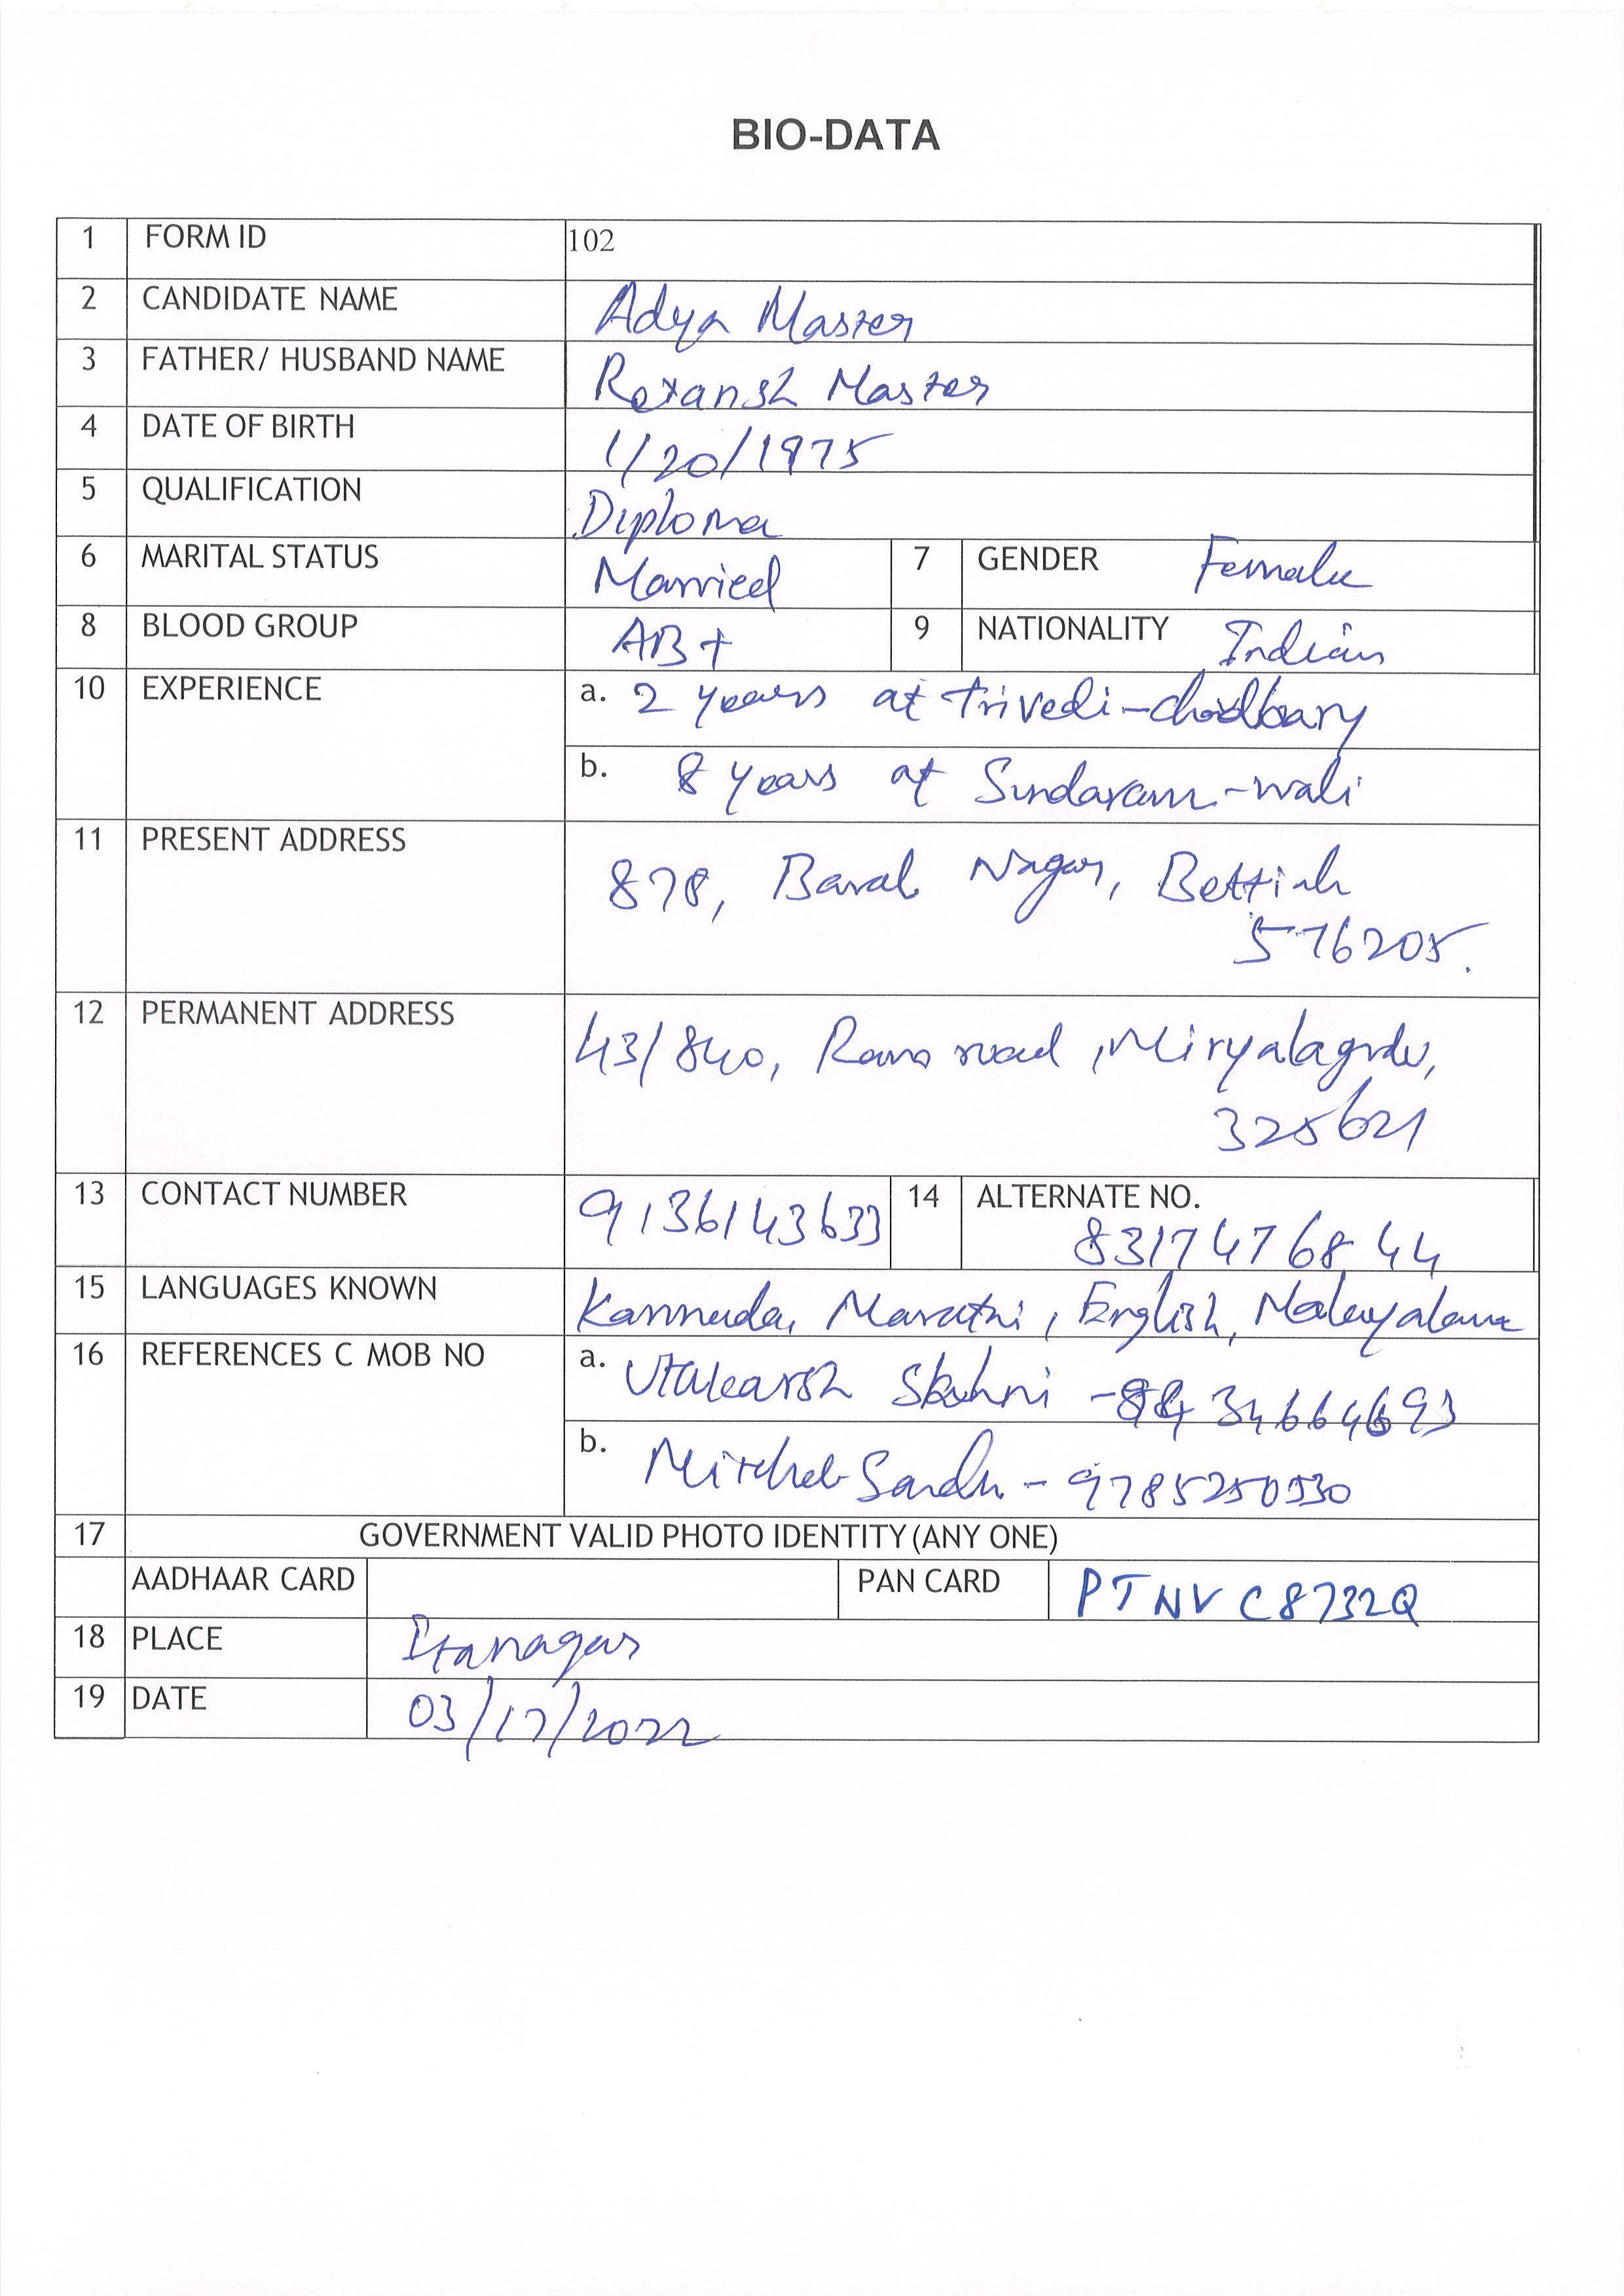 BIO-DATA
1 FORM ID 102
2 CANDIDATE NAME Adya Master
3 FATHER/ HUSBAND NAME Master
4 DATE OF BIRTH 1/20/1975
5 QUALIFICATION Diploma
6 MARITAL STATUS Married 7 GENDER Female
8 BLOOD GROUP AB+ 9 NATIONALITY Indian
10 EXPERIENCE a. 2 years at Trivedi-
b. 8 years at Sundaram-wali
11 PRESENT ADDRESS 878, Baral Nagar, Bettiah
576205.
12 PERMANENT ADDRESS 43/840, road, Miryalaguda,
325621
13 CONTACT NUMBER 9136143633 14 ALTERNATE NO.
8317476844
15 LANGUAGES KNOWN Kannada, Marathi, English, Malayalam
16 REFERENCES C MOB NO a. Utakarsh -
b. Sandhu - 9785250530
17 GOVERNMENT VALID PHOTO IDENTITY (ANY ONE)
AADHAAR CARD PAN CARD PTNVC8732Q
18 PLACE Itanagar
19 DATE 03/17/2022